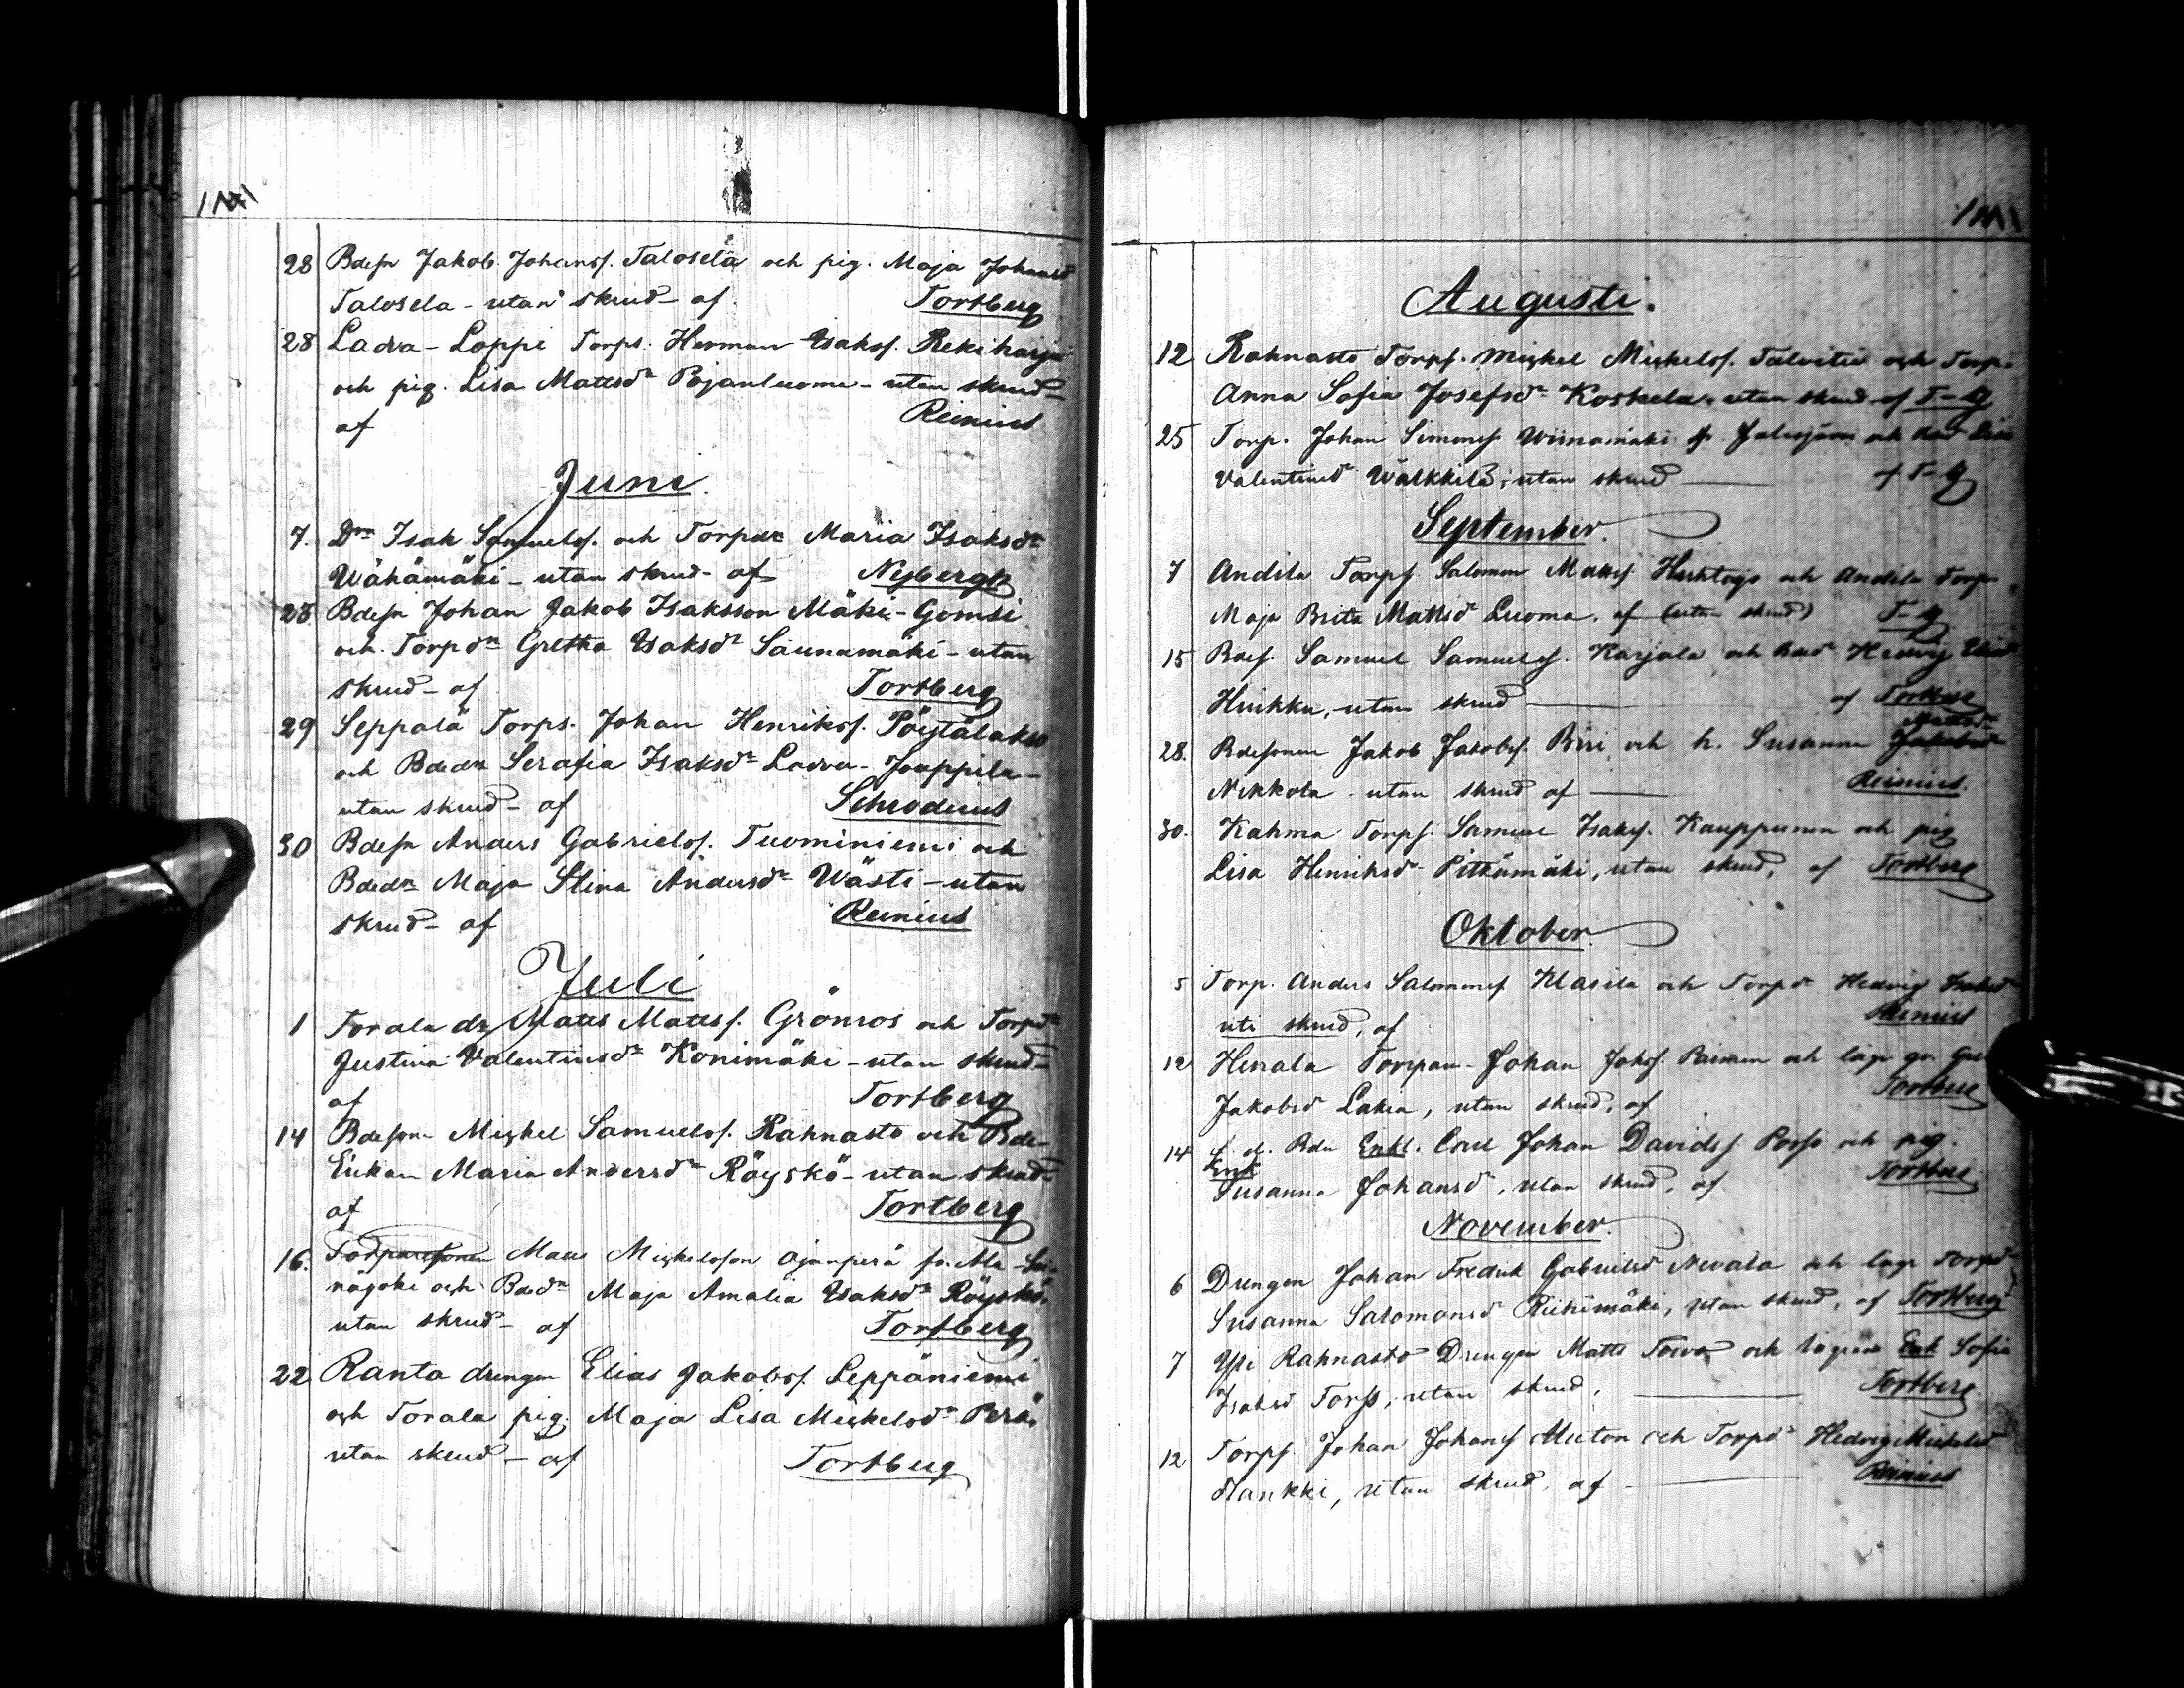 28 Bdesn Jakob Johanss. Talosela och pig. Maja Johansd
Talosela - utan skrud - af Tortberg
28 Ladva-Loppi Torps. Herman Isakss. Rekiharju
och pig. Lisa Mattsdr Pojanluoma - utan skrud -
af Reinius
Juni.
7. Drn Isak Samuelss. och Torpdr Maria Isaksdr
Wähämäki - utan skrud - af Nybergh
23 Bdesn Johan Jakob Isaksson Mäki-Gomsi
och Torpdr Gretha Isaksdr Saunamäki - utan
skrud - af Tortberg
29 Seppälä Torps. Johan Henrikss. Pöytälakso
och Bdedr Serafia Isaksdr Ladva-Jouppila -
utan skrud - af Schroderus
30 Bdesn Anders Gabrielss. Tuominiemi och
Bdedr Maja Stina Andersdr Wästi - utan
skrud - af Reinius
Juli
1 Torala dr Matts Mattss. Grönros och Torpdr
Justina Valentinsdr Konimäki - utan skrud -
af Tortberg
14 Bdeson Michel Samuelss. Rahnasto och Bde
Enkan Maria Andersdr Röyskö - utan skrud -
af Tortberg
16. Torparesonen Matts Michelsson Ojanperä fr. Ala-
nägoki och Bdedr Maja Amalia Isaksdr Röyskö,
utan skrud - af Tortberg
22 Ranta drengen Elias Jakobss. Leppäniemi
och Torala pig. Maja Lisa Mickelsdr Perä,
utan skrud - af Tortberg
Augusti.
12 Rahnasto Torps. Michel Mickelss. Talvitie och Torp.
Anna Sofia Josefsdr Koskela, utan skrud af T-g
25 Torp. Johan Simonss. Wiinamäki fr Jalasjärvi och Lisa
Valentinsd Wälkkilä, utan skrud af T-g
September.
7 Andila Torps. Salomon Mattss. och Andila Torp.
Maja Brita Mattsd Luoma, af (utan skrud) T-g
15 Bdes. Samuel Samuelss. Karjala och Bdedr Hedvig
Huikku, utan skrud af Tortberg
28. Bdesonen Jakob Jakobss. Biri och h. Susanna Jakobsd
Nikkola - utan skrud af Reinius.
30. Kahma Torps. Samuel Isakss. Kauppinen och pig
Lisa Henriksd Pitkämäki, utan skrud, af Tortberg
Oktober
5 Torp. Anders Salomonss. Klasila och Torpdr Hedvig Isaksd
uti skrud, af Reinius
12 Herrala Torparn Johan Jakss. och
Jakobsd Lakia, utan skrud, af Tortberg
14 f. d. Bdn Enkl. Carl Johan Davidss och pig.
Susanna Johansd, utan skrud, af Tortberg
November.
6 Drengen Johan Fredrik Gabrielss Nevala och Torpdr
Susanna Salomonsd Riihimäki, utan skrud, af Tortberg
7 Yli Rahnasto Drengen Matts och Sofia
Isaksd, utan skrud, Tortberg
12 Torps. Johan Johanss och Torpdr Hedvig Mickelsd
Hankki, utan skrud, af Reinius